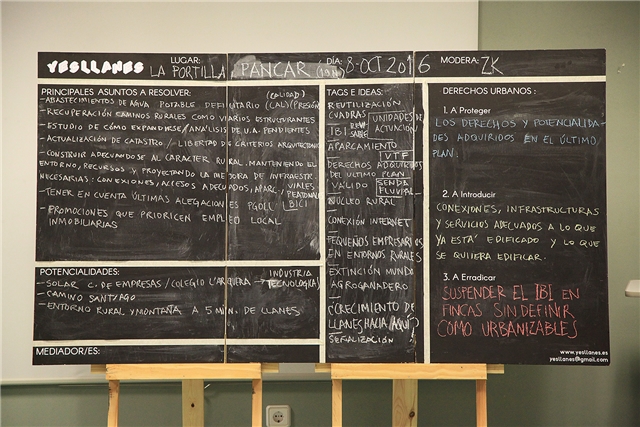 YESLLANES LUGAR: LA PORTILLA, PANCAR (19h) DÍA: 8-OCT 2016 MODERA: ZK
PRINCIPALES ASUNTOS A RESOLVER:
(CALIDAD)
-ABASTECIMIENTOS DE AGUA POTABLE DEFICITARIO (CAL) (PRESIÓN)
-RECUPERACIÓN CAMINOS RURALES COMO VIARIOS ESTRUCTURANTES
-ESTUDIO DE CÓMO EXPANDIRSE / ANÁLISIS DE U.A. PENDIENTES
-ACTUALIZACIÓN DE CATASTRO / LIBERTAD DE CRITERIOS ARQUITECTÓNICO
-CONSTRUIR ADECUANDOSE AL CARACTER RURAL, MANTENIENDO EL
ENTORNO, RECURSOS Y PROYECTANDO LA MEJORA DE INFRAESTR.
NECESARIAS: CONEXIONES, ACCESOS ADECUADOS, APARC., VIALES
PEATONAL
BICI
-TENER EN CUENTA ÚLTIMAS ALEGACIONES PGOU
-PROMOCIONES QUE PRIORICEN EMPLEO LOCAL
INMOBILIARIAS
POTENCIALIDADES:
-SOLAR C. DE EMPRESAS / COLEGIO L'ARQUERA → INDUSTRIA
TECNOLÓGICA
-CAMINO SANTIAGO
-ENTORNO RURAL Y MONTAÑA A 5 MIN. DE LLANES
MEDIADOR/ES:
TAGS E IDEAS:
REUTILIZACIÓN
CUADRAS
IBI
UNIDADES DE
ACTUACIÓN
APARCAMIENTO
VTF
DERECHOS ADQUIRIDOS
DEL ULTIMO PLAN
VALIDO
SENDA
FLUVIAL
NÚCLEO RURAL
CONEXIÓN INTERNET
PEQUEÑOS EMPRESARIOS
EN ENTORNOS RURALES
EXTINCIÓN MUNDO
AGROGANADERO
¿CRECIMIENTO DE
LLANES HACIA AQUÍ?
SEÑALIZACIÓN
DERECHOS URBANOS:
1. A Proteger
LOS DERECHOS Y POTENCIALIDA-
DES ADQUIRIDOS EN EL ÚLTIMO
PLAN.
2. A Introducir
CONEXIONES, INFRAESTRUCTURAS
Y SERVICIOS ADECUADOS A LO QUE
YA ESTÁ EDIFICADO Y LO QUE
SE QUIERA EDIFICAR.
3. A Erradicar
SUSPENDER EL IBI EN
FINCAS SIN DEFINIR
COMO URBANIZABLES
www.yesllanes.es
yesllanes@gmail.com